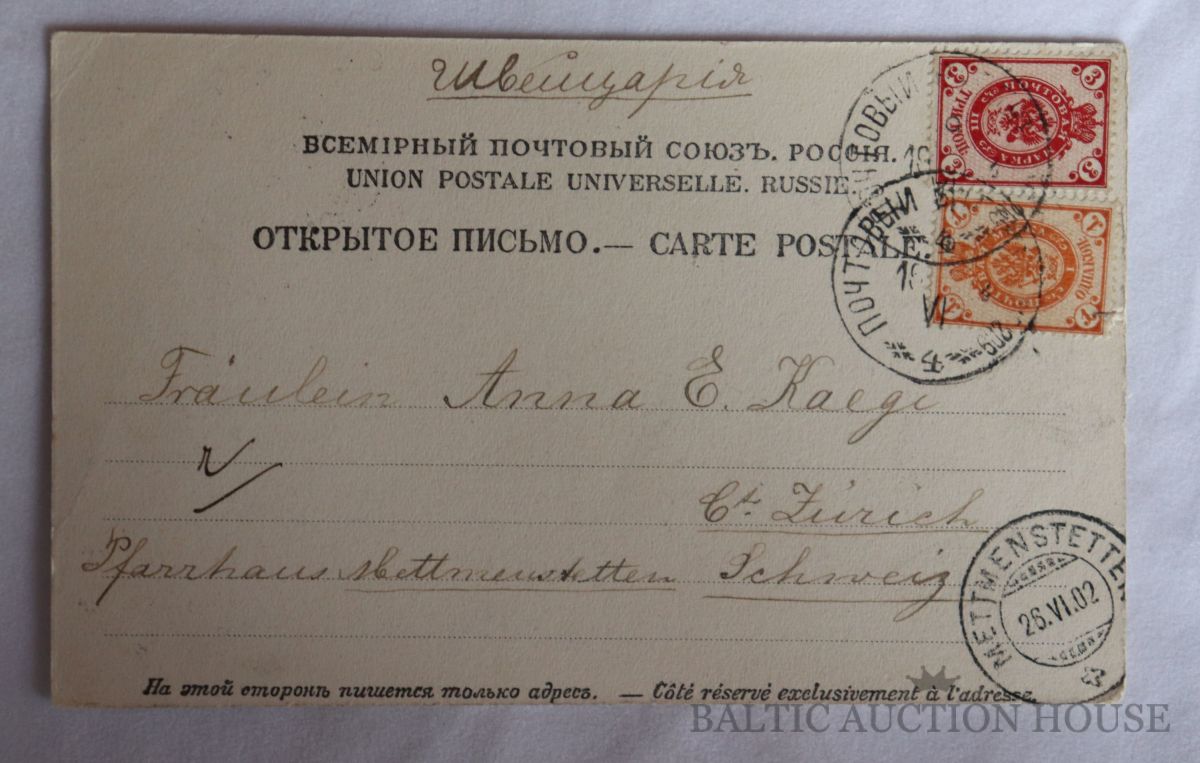 Швейцарія
ВСЕМІРНЫЙ ПОЧТОВЫЙ СОЮЗЪ. РОССІЯ.
UNION POSTALE UNIVERSELLE. RUSSIE.
ОТКРЫТОЕ ПИСЬМО.— CARTE POSTALE.
3 3
3 3
1 1
1 1
ПОЧТОВЫЙ
VI
Fräulein Anna E. Kaegi
Ct. Zürich
Pfarrhaus Mettmenstetten Schweiz
METTMENSTETTEN
26.VI.02
На этой сторонѣ пишется только адресъ. — Côté réservé exclusivement à l'adresse.
BALTIC AUCTION HOUSE